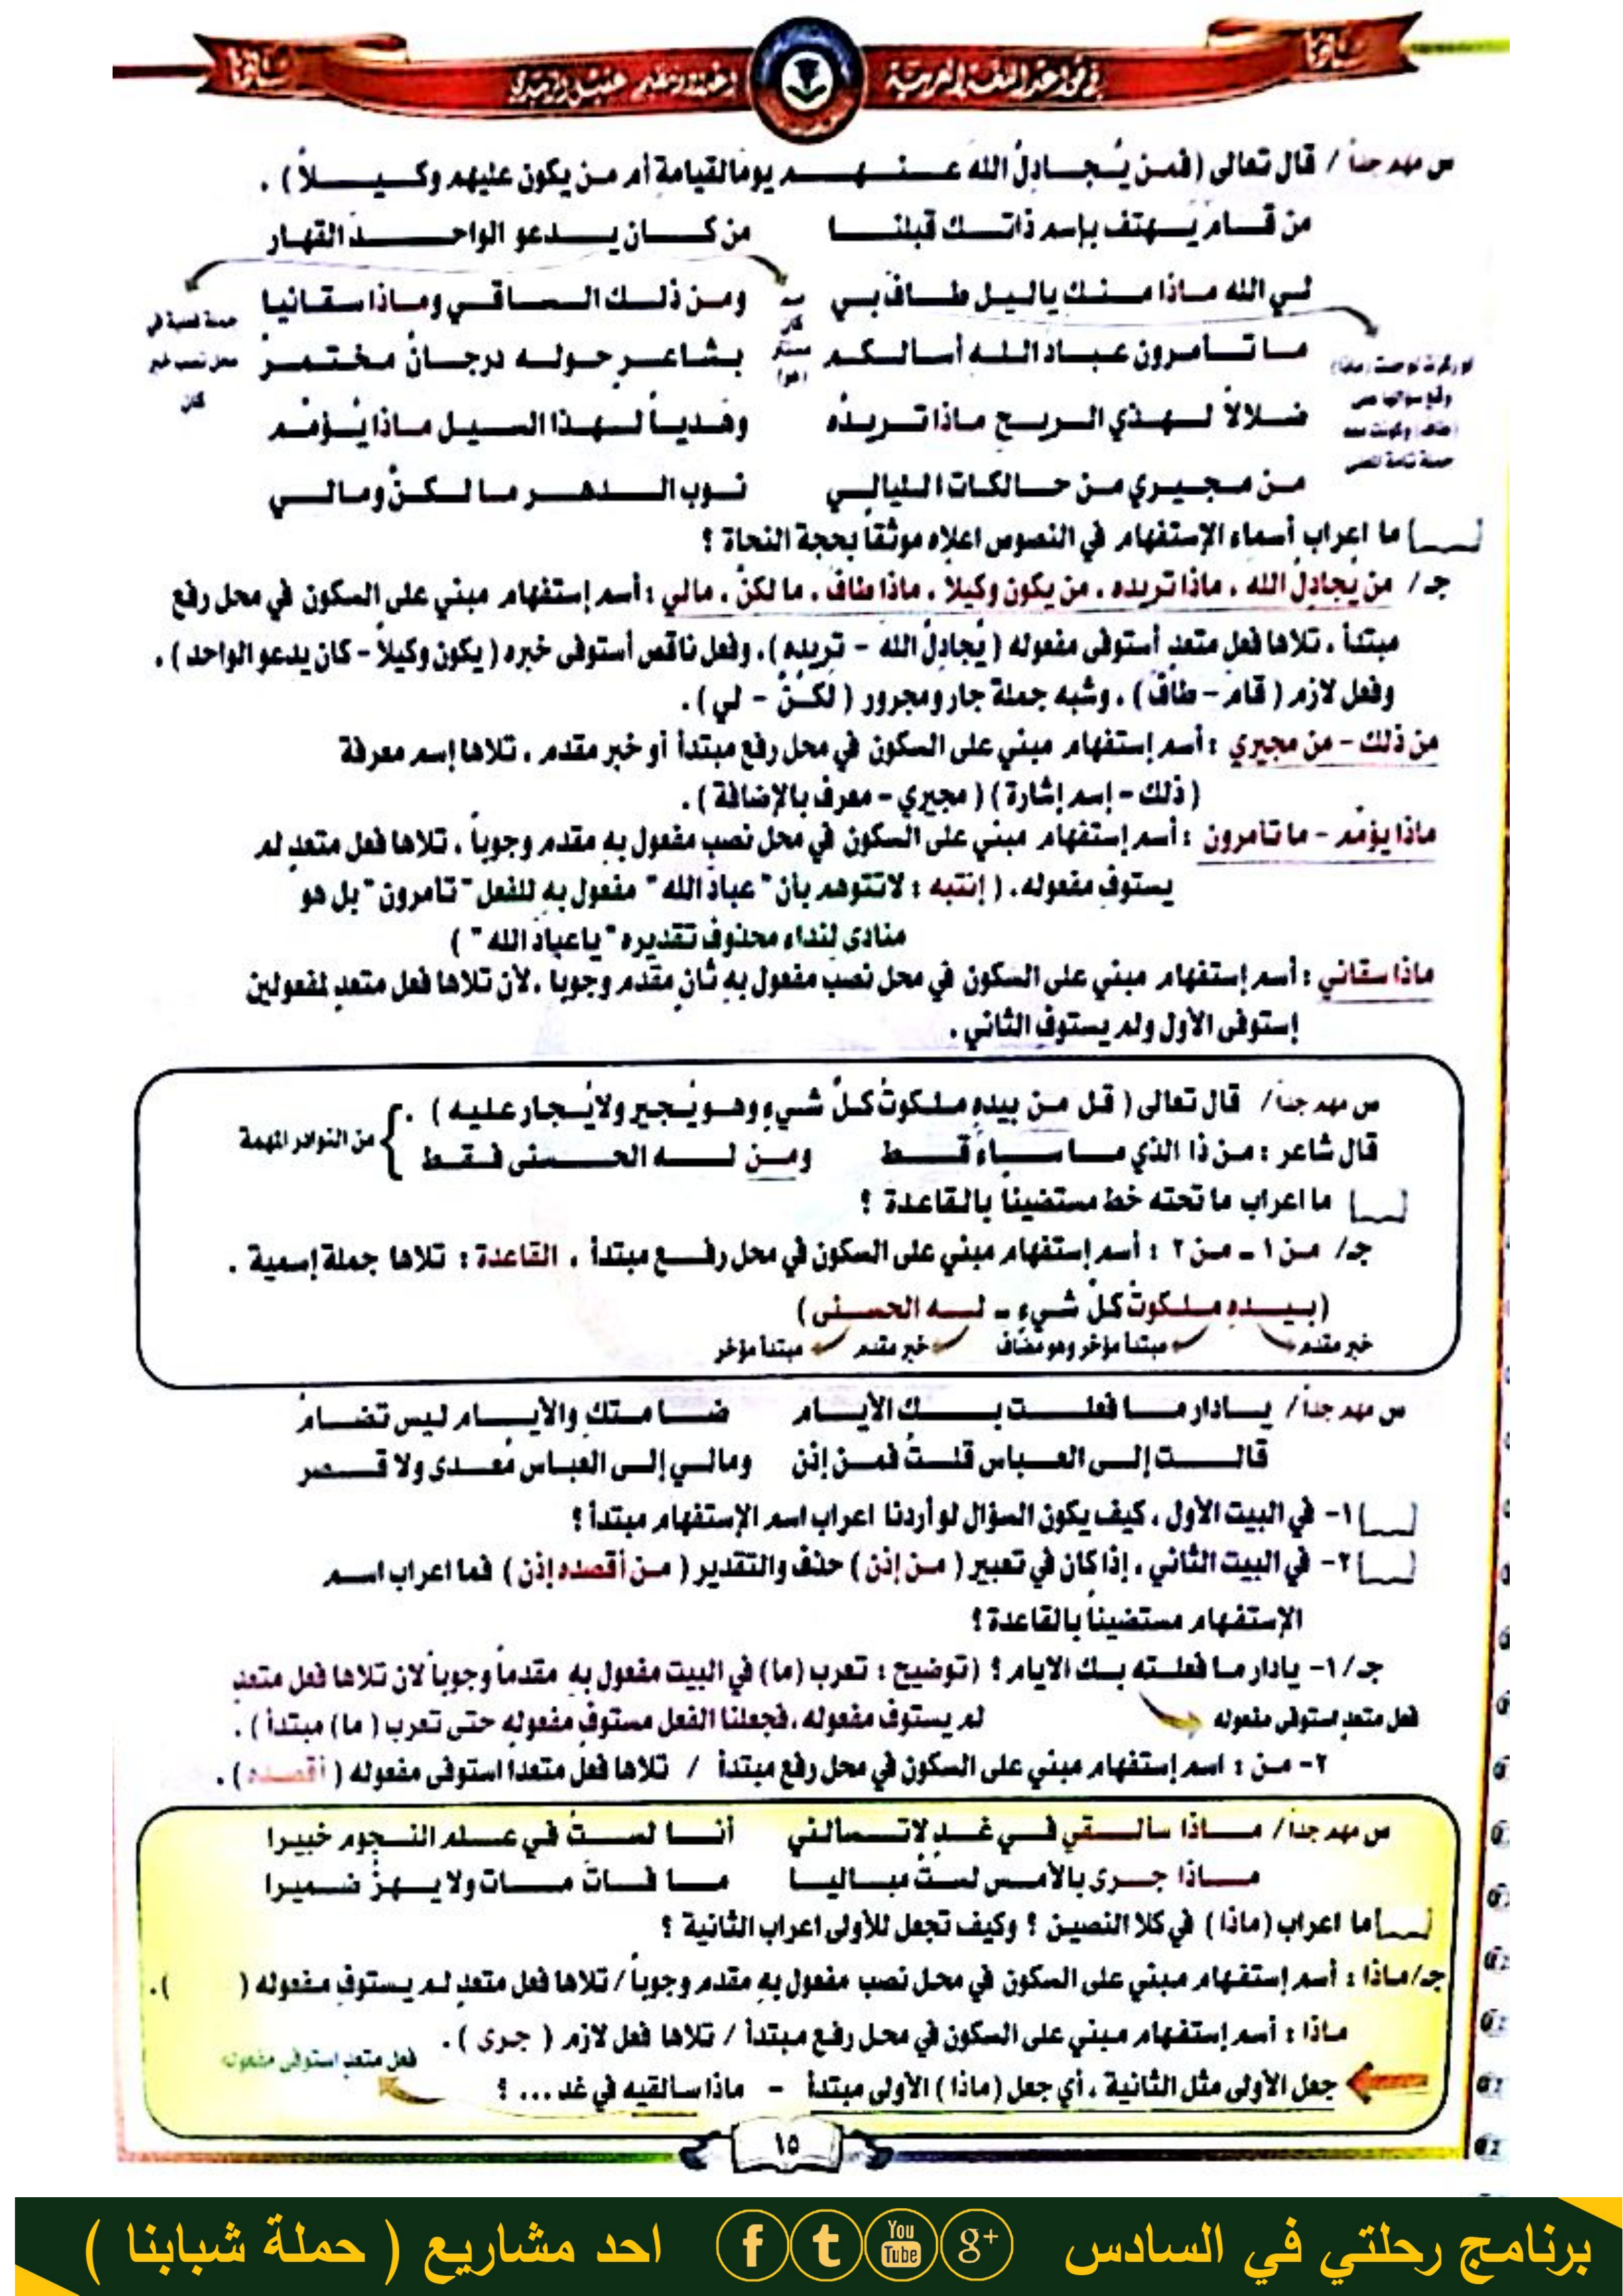 في قواعد اللغة العربية
س مهم جداً / قال تعالى (فمن يُجادِلُ اللهَ عنهم يومَ القيامة أم من يكون عليهم وكيلاً ) .
من قام يهتف بإسم ذاتك قبلنا من كان يدعو الواحدَ القهار
لي الله ماذا منك ياليل طاف بي ومن ذلك الساقي وماذا سقانيا
ما تأمرون عباد الله أسألكم بشاعرٍ حوله درجانُ مختمرُ
ضلالاً لهذي الريح ماذا تريدُه وهدياً لهذا السيل ماذا يُؤمّم
من مجيري من حالكات الليالي نوب الدهر ما لكنّ ومالي
جملة فعلية في
محل نصب خبر
كان
مستتر
(هو)
وقع سؤالها على
(طاف) وكونت معه
جملة تامة المعنى
[__] ما اعراب أسماء الإستفهام في النصوص اعلاه موثقاً بحجة النحاة ؟
جـ/ من يُجادِلُ الله ، ماذا تريده ، من يكون وكيلاً ، ماذا طافَ ، ما لكنّ ، مالي : أسم إستفهام مبني على السكون في محل رفع
مبتدأ ، تلاها فعل متعدٍ أستوفى مفعوله ( يُجادِلُ الله - تريده ) ، وفعل ناقص أستوفى خبره ( يكون وكيلاً - كان يدعو الواحد ) ،
وفعل لازم ( قام - طافَ ) ، وشبه جملة جار ومجرور ( لكُنّ - لي ) .
من ذلك - من مجيري : أسم إستفهام مبني على السكون في محل رفع مبتدأ أو خبر مقدم ، تلاها إسم معرفة
( ذلك - إسم إشارة ) ( مجيري - معرف بالإضافة ) .
ماذا يؤمّم - ما تأمرون : أسم إستفهام مبني على السكون في محل نصب مفعول به مقدم وجوباً ، تلاها فعل متعدٍ لم
يستوفِ مفعوله . ( إنتبه : لاتتوهم بأن " عبادَ الله " مفعول به للفعل " تأمرون " بل هو
منادى لنداء محذوف تقديره " ياعبادَ الله " )
ماذا سقاني : أسم إستفهام مبني على السكون في محل نصب مفعول به ثانٍ مقدم وجوبا ، لأن تلاها فعل متعدٍ لمفعولين
إستوفى الأول ولم يستوفِ الثاني .
س مهم جداً/ قال تعالى ( قل من بيدهِ ملكوتُ كلِّ شيءٍ وهو يُجير ولا يُجار عليه ) .
قال شاعر : من ذا الذي ما ساءَ قط ومن له الحسنى فقط
من النوادر المهمة
[__] ما اعراب ما تحته خط مستضيئاً بالقاعدة ؟
جـ/ من ١ ـ من ٢ : أسم إستفهام مبني على السكون في محل رفع مبتدأ ، القاعدة : تلاها جملة إسمية .
(بيدهِ ملكوتُ كلِّ شيءٍ ـ له الحسنى )
خبر مقدم مبتدأ مؤخر وهو مضاف خبر مقدم مبتدأ مؤخر
س مهم جداً/ يادار ما فعلت بك الأيام ضامتكِ والأيام ليس تضامُ
قالت إلى العباس قلتُ فمن إذن ومالي إلى العباس مُعدى ولا قصر
[__] ١- في البيت الأول ، كيف يكون السؤال لو أردنا اعراب اسم الإستفهام مبتدأ ؟
[__] ٢- في البيت الثاني ، إذا كان في تعبير ( من إذن ) حذف والتقدير ( من أقصده إذن ) فما اعراب اسم
الإستفهام مستضيئاً بالقاعدة ؟
جـ/ ١- يادار ما فعلته بك الايام ؟ (توضيح : تعرب (ما) في البيت مفعول به مقدماً وجوباً لان تلاها فعل متعدٍ
لم يستوفِ مفعوله ، فجعلنا الفعل مستوفٍ مفعوله حتى تعرب ( ما) مبتدأ ) .
فعل متعدٍ استوفى مفعوله
٢- من : اسم إستفهام مبني على السكون في محل رفع مبتدأ / تلاها فعل متعدا استوفى مفعوله ( أقصده ) .
س مهم جداً/ ماذا سألقي في غدٍ لاتسألني أنا لستُ في علم النجوم خبيرا
ماذا جرى بالأمس لستُ مباليا ما فاتَ مات ولا يهزُّ ضميرا
[__] ما اعراب (ماذا ) في كلا النصين ؟ وكيف تجعل للأولى اعراب الثانية ؟
جـ/ماذا : أسم إستفهام مبني على السكون في محل نصب مفعول به مقدم وجوباً / تلاها فعل متعدٍ لم يستوفِ مفعوله ( ).
ماذا : أسم إستفهام مبني على السكون في محل رفع مبتدأ / تلاها فعل لازم ( جرى ) .
فعل متعدٍ استوفى مفعوله
جعل الأولى مثل الثانية ، أي جعل (ماذا ) الأولى مبتدأ - ماذا سألقيه في غد ... ؟
١٥
برنامج رحلتي في السادس
g+ You Tube t f
احد مشاريع ( حملة شبابنا )